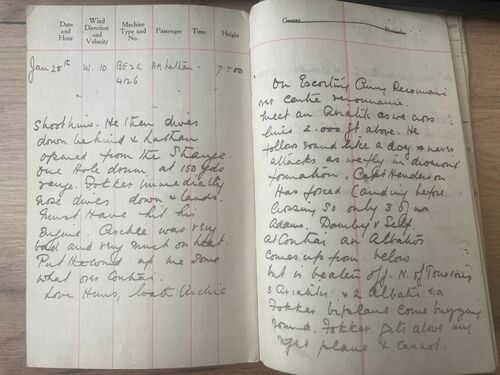 Date and Hour
Wind Direction and Velocity
Machine Type and No.
Passenger
Time
Height
Jan 25th W. 10 BE2C AM Lathan - 7500
4126
Shoot him. He then dives
down behind & Lathan
opened from the Strange.
One Hole drum, at 150 yds
range. Fokker immediately
nose dives down & lands.
Must Have hit his
Engine. Archie was very
bad and very much on height.
Put the wind up me some
what over Contai.
Love Huns, loath Archie
Course
Remarks
On Escorting Army Reconnai
over centre reconnai
Meet an Aviatik as we cross
lines 2.000 ft above. He
follows round like a dog & never
attacks as we fly in diamond
formation. Capt Henderson
Has forced landing before
crossing so only 3 of us
Adams. Dombey & Self.
At Contai an Albatros
comes up from below
but is beaten off. N. of
3 Aviatiks & 2 Albatri & a
Fokker biplane come buzzing
round. Fokker gets above my
right plane & cannot.